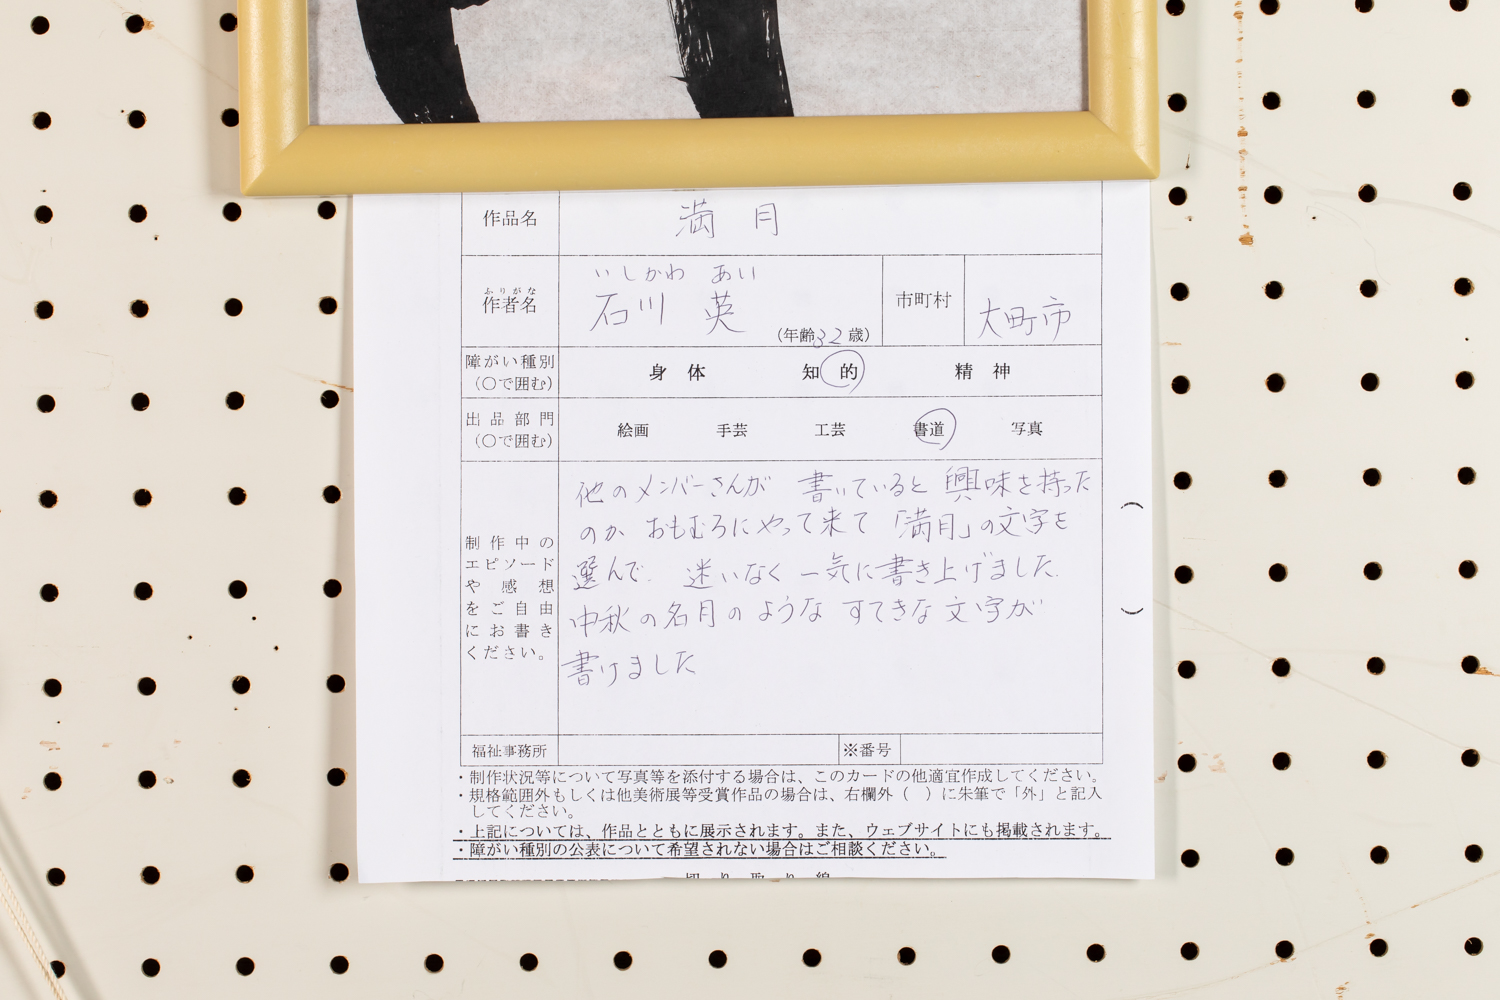 作品名 満月
いしかわ あい
ふりがな
作者名 石川 英 (年齢32歳) 市町村 大町市
障がい種別
(〇で囲む) 身体 知的 精神
出品部門
(〇で囲む) 絵画 手芸 工芸 書道 写真
制作中の
エピソード
や感想
をご自由
にお書き
ください。
他のメンバーさんが 書いていると 興味を持った
のか おもむろにやって来て「満月」の文字を
選んで、迷いなく 一気に書き上げました。
中秋の名月のような すてきな文字が
書けました
福祉事務所 ※番号
・制作状況等について写真等を添付する場合は、このカードの他適宜作成してください。
・規格範囲外もしくは他美術展等受賞作品の場合は、右欄外( )に朱筆で「外」と記入
してください。
・上記については、作品とともに展示されます。また、ウェブサイトにも掲載されます。
・障がい種別の公表について希望されない場合はご相談ください。
切り取り線
( )